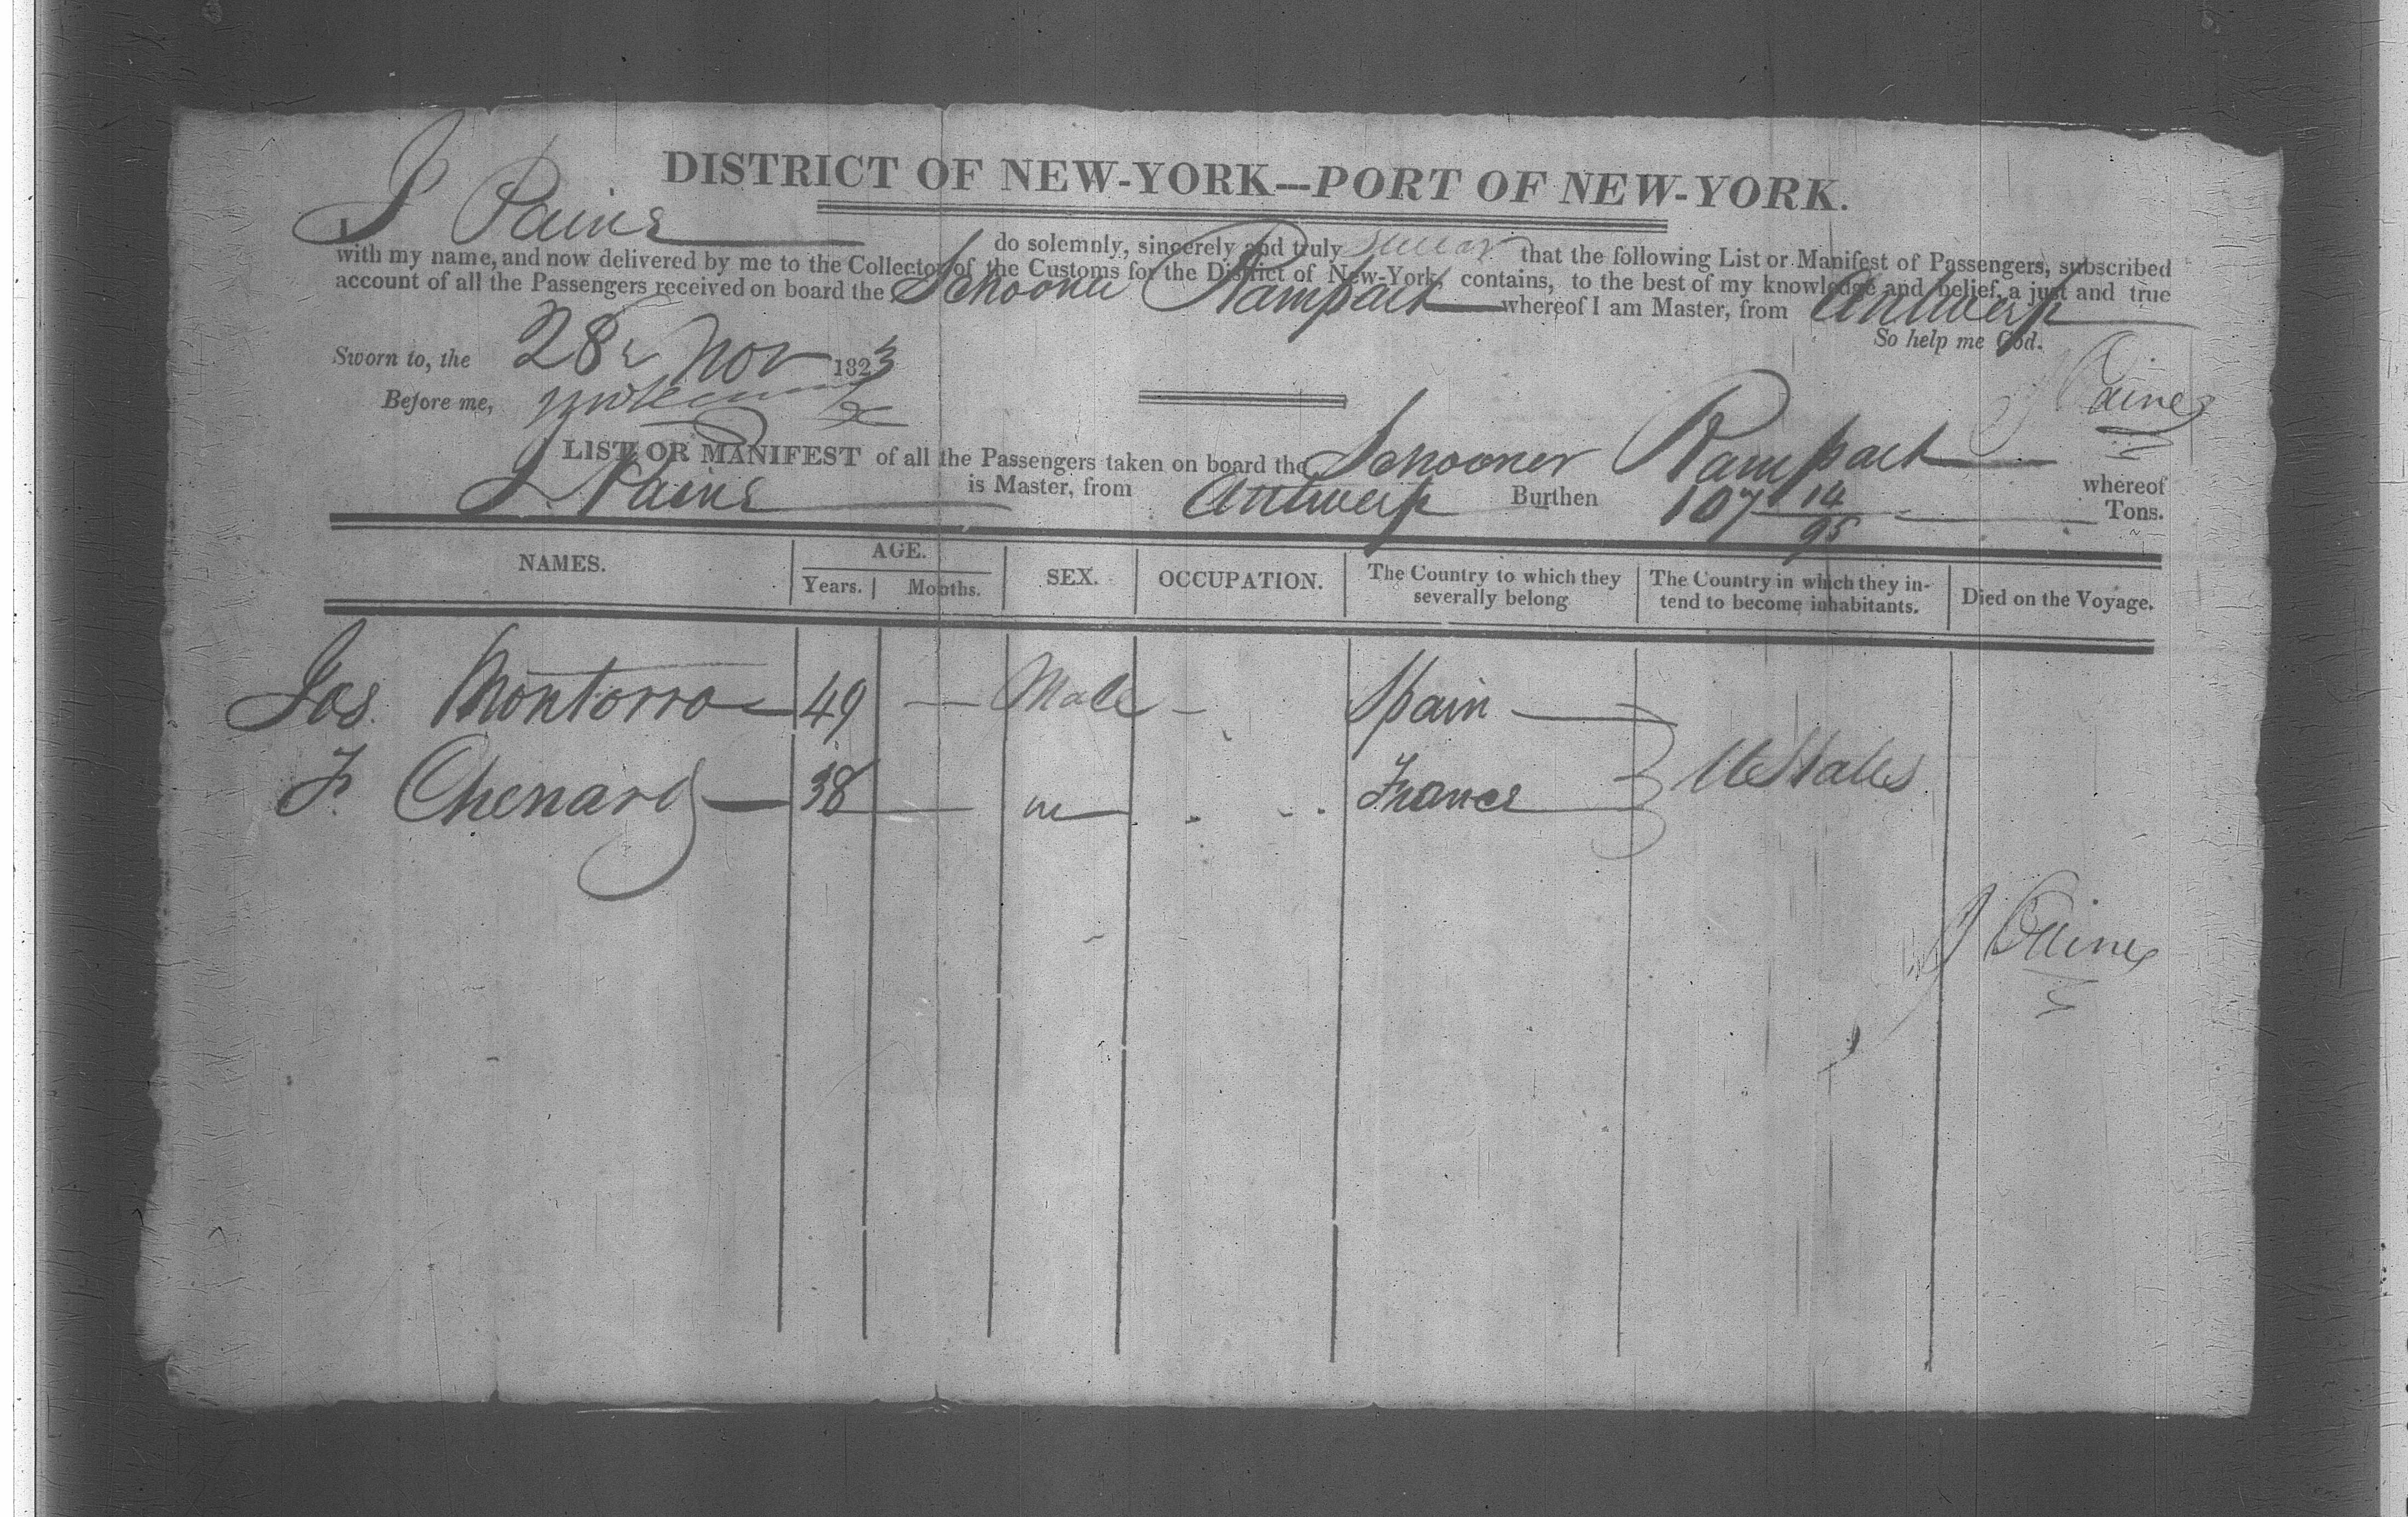 DISTRICT OF NEW-YORK—PORT OF NEW-YORK.
I J Paine do solemnly, sincerely and truly swear that the following List or Manifest of Passengers, subscribed
with my name, and now delivered by me to the Collector of the Customs for the District of New-York, contains, to the best of my knowledge and belief, a just and true
account of all the Passengers received on board the Schooner Rampart whereof I am Master, from Antwerp
So help me God.
Sworn to, the 28 Nov 1823
J Paine
Before me,
LIST OR MANIFEST of all the Passengers taken on board the Schooner Rampart whereof
J. Paine is Master, from Antwerp Burthen 107 14/95 Tons.
NAMES. AGE. SEX. OCCUPATION. The Country to which they severally belong The Country in which they intend to become inhabitants. Died on the Voyage.
Years. Months.
Jos. Montorro 49 — Male - Spain
F. Chenard 38 — m France UStates
J Paine